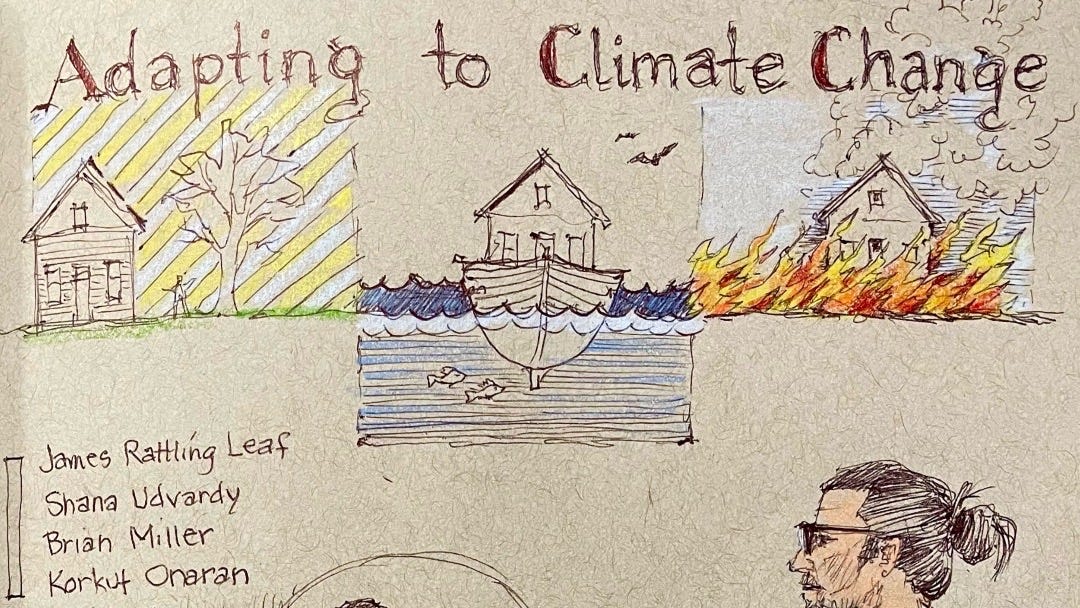 Adapting to Climate Change
James Rattling Leaf
Shana Udvardy
Brian Miller
Korkut Onaran